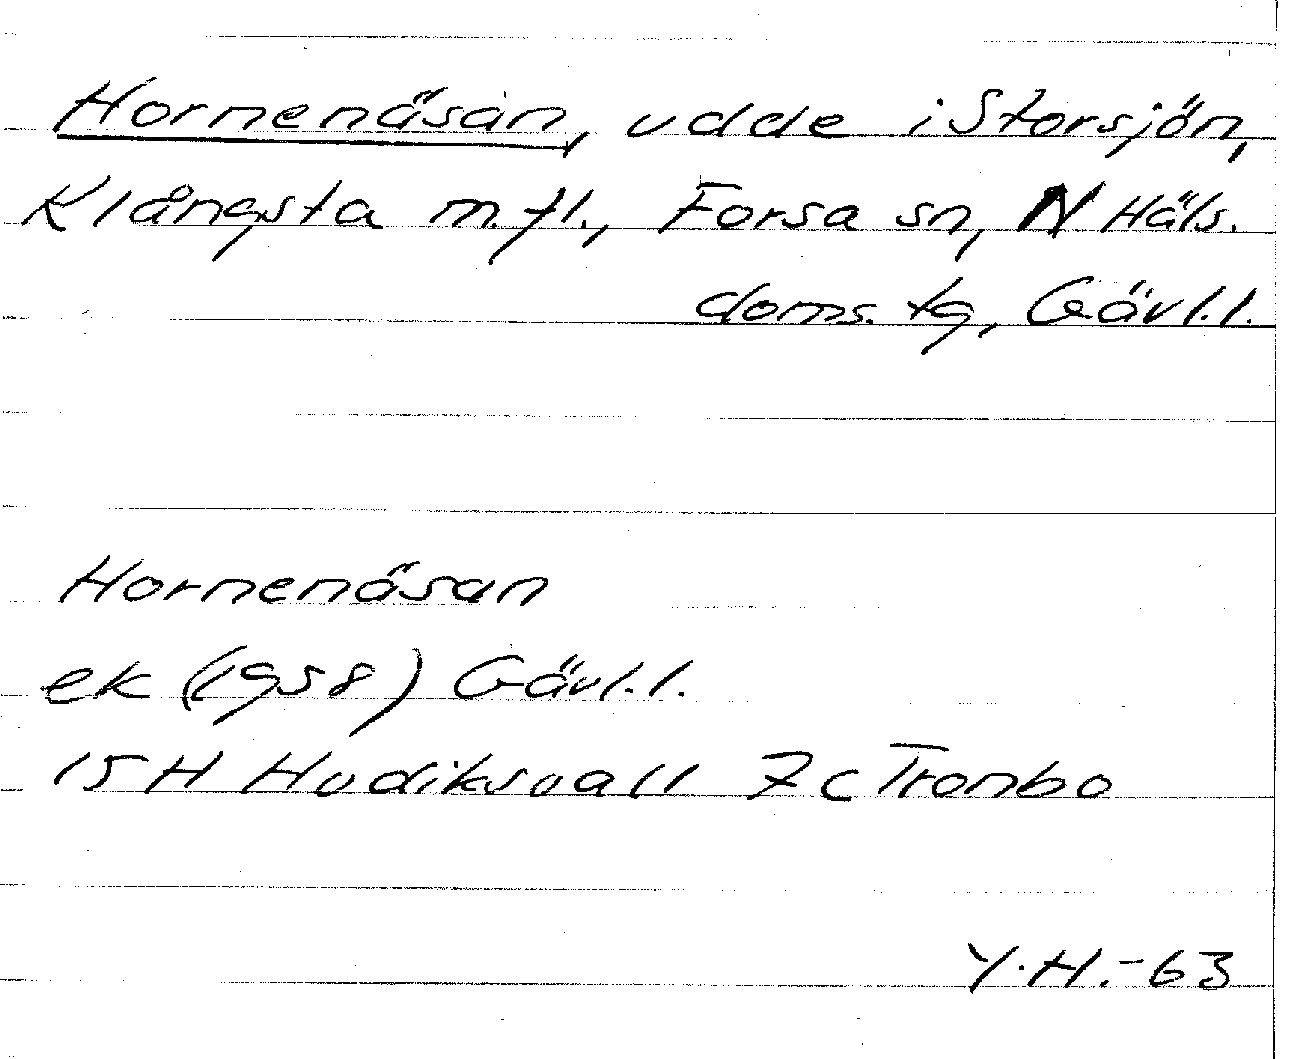 Hornenäsan, udde i Storsjön,
Klångsta m.fl., Forsa sn, N Häls.
doms. tg, Gävl.l.
Hornenäsan
ek (1958) Gävl.l.
15 H Hudiksvall 7 c Tronbo
Y.H.-63